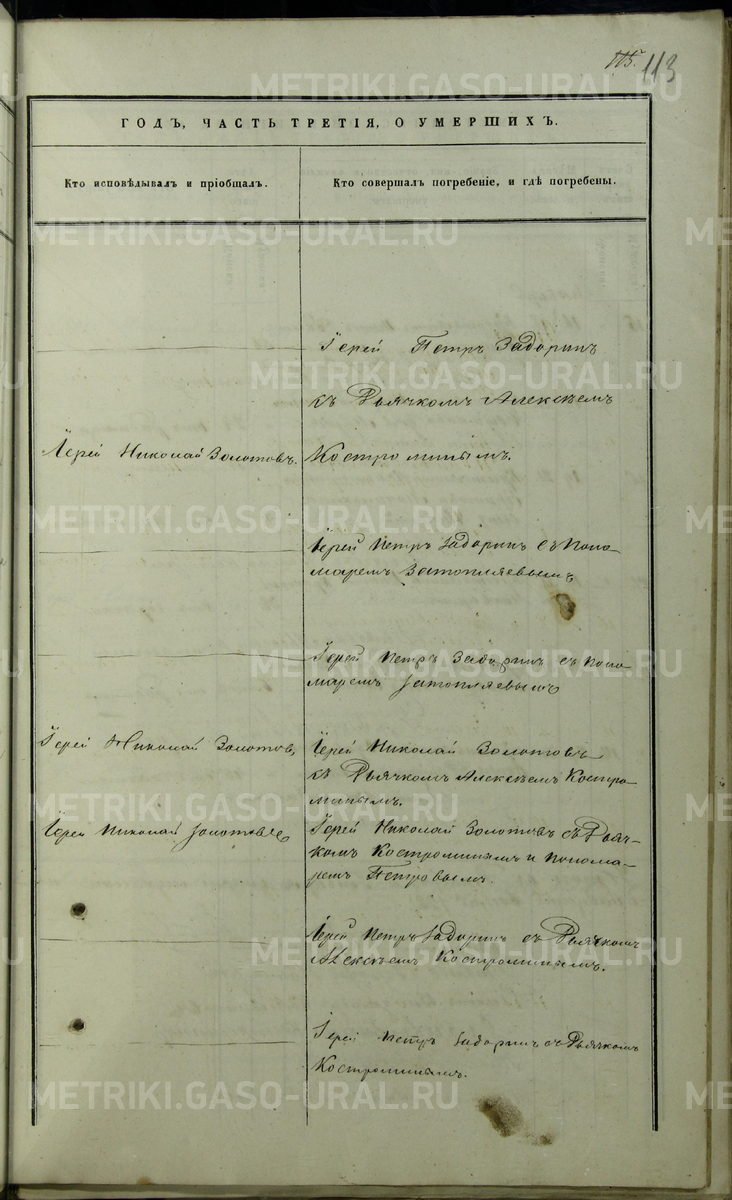 115. 113
ГОДЪ, ЧАСТЬ ТРЕТІЯ, О УМЕРШИХЪ.
Кто исповѣдывалъ и пріобщалъ.
Кто совершалъ погребеніе, и гдѣ погребены.
Іерей Петръ Задоринъ
съ Дьячкомъ Алексѣемъ
Іерей Николай Золотовъ.
Костроминымъ.
Іерей Петръ Задоринъ съ Поно-
маремъ Затопляевымъ
Іерей Петръ Задоринъ съ Поно-
маремъ Затопляевымъ
Іерей Николай Золотовъ
Іерей Николай Золотовъ
съ Дьячкомъ Алексѣемъ Костро-
минымъ.
Іерей Николай Золотовъ
Іерей Николай Золотовъ съ Дьяч-
комъ Костроминымъ и Понома-
ремъ Петровымъ.
Іерей Петръ Задоринъ съ Дьячкомъ
Алексѣемъ Костроминымъ.
Іерей Петръ Задоринъ съ Дьячкомъ
Костроминымъ.
METRIKI.GASO-URAL.RU